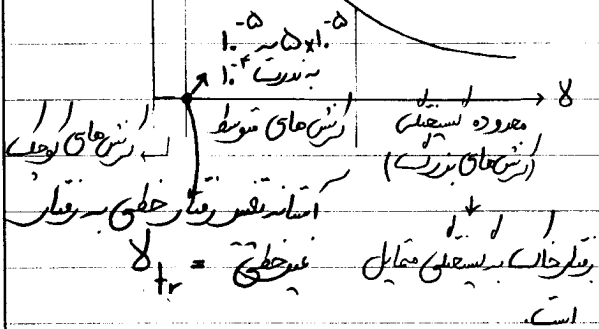 ۱۰⁻۵ تا ۵×۱۰⁻۵
به ندرت ۱۰⁻۴
γ
کرنش‌های کوچک
کرنش‌های متوسط
محدوده گسیختگی
(کرنش‌های بزرگ)
آستانه تغییر رفتار خطی به رفتار
غیرخطی = γtr
رفتار خاک به گسیختگی متمایل
است.